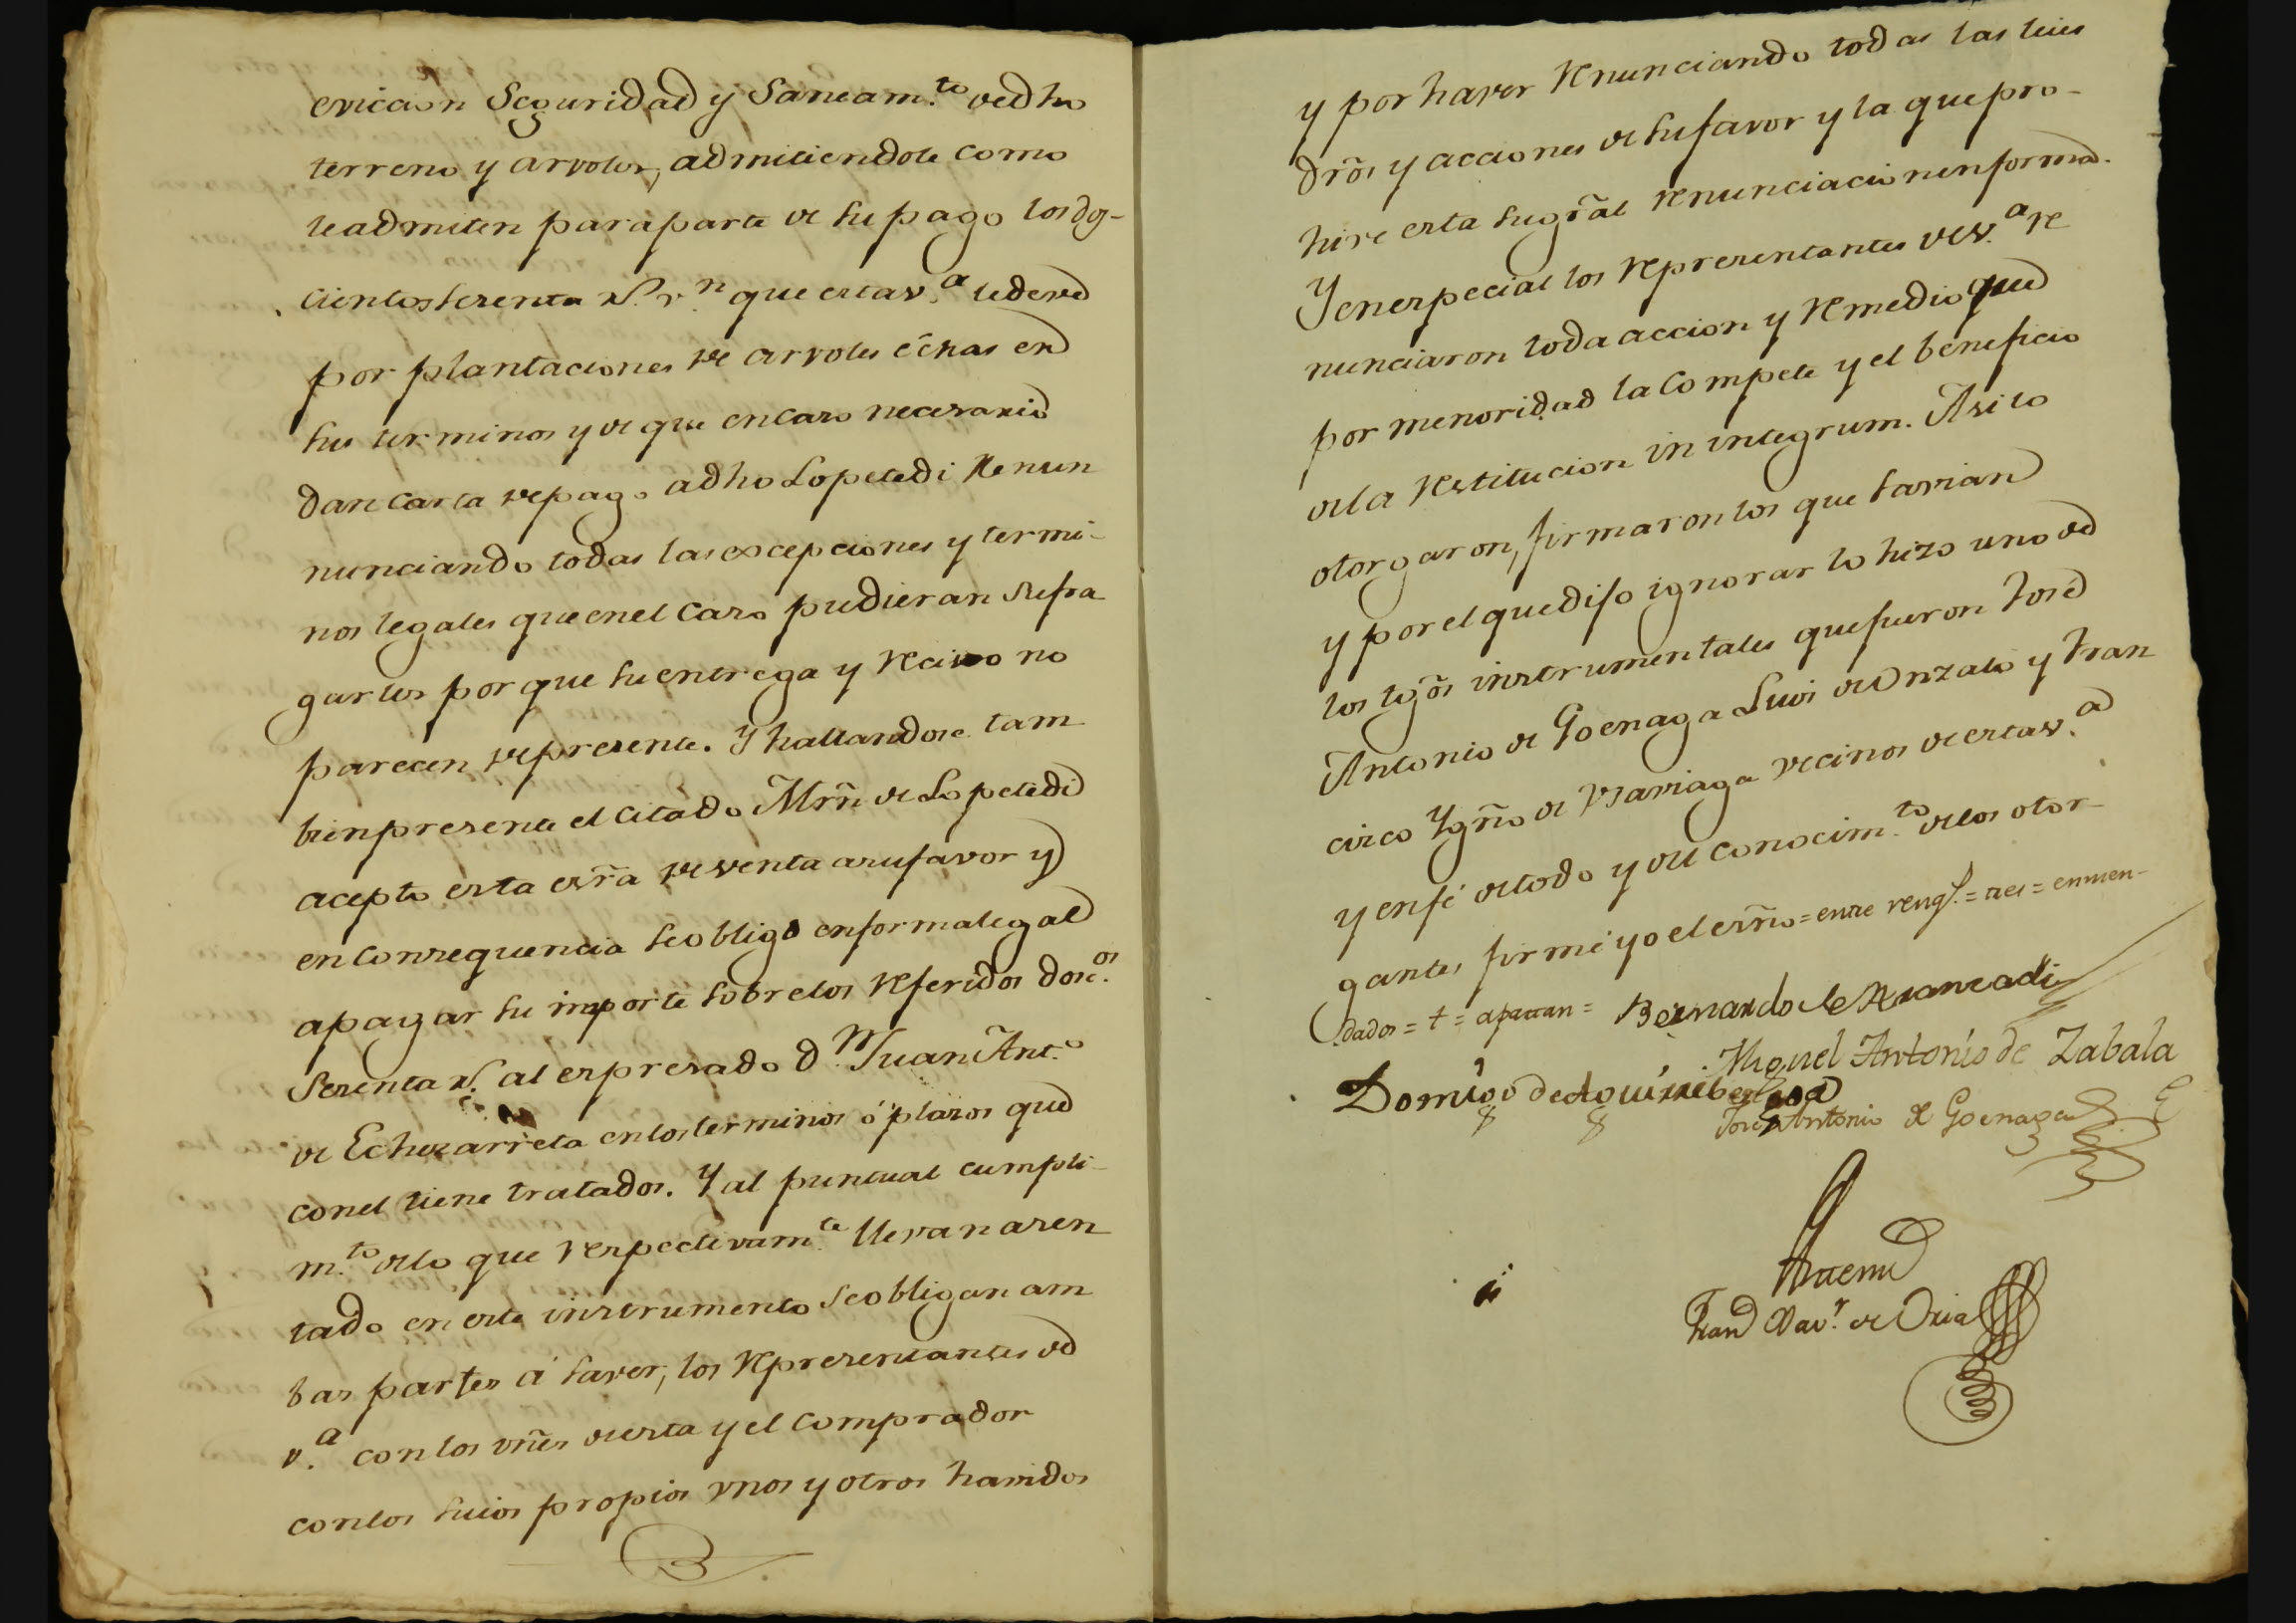 eviccion Seguridad y Saneam.to de dho
terreno y arvoles, admitiendole como
le admiten para parte de su pago los dos-
cientos sesenta r.s v.n que esta v.a le deve
por plantaciones de arvoles échas en
sus terminos y de que en caso necesario
dan carta de pago a dho Lopetedi Renun
nunciando todas las excepciones y termi-
nos legales que en el caso pudieran sufra
garles por que su entrega y Recivo no
parecen de presente. Y hallandose tam
bien presente el citado Mrñ de Lopetedi
acepto esta esrã de venta a su favor y
en consequencia se obligó en forma legal
a pagar su importe sobre los Referidos dosc.os
Sesenta r.s al expresado D.n Juan Ant.o
de Echezarreta en los terminos ó plazos que
con el tiene tratados. Y al puntual cumpli-
m.to de lo que Respectivam.te llevan asen
tado en este instrumento se obligan am
bas partes á saver, los Representantes de
v.a con los vñes de esta y el comprador
con los suios propios vnos y otros havidos
y por haver Renunciando todas las leies
drõs y acciones de su favor y la que pro-
hive esta su grãl Renunciacion en forma.
Y en especial los Representantes de v.a Re
nunciaron toda accion y Remedio que
por menoridad la compete y el beneficio
de la Restitucion in integrum. Asi lo
otorgaron, firmaron los que savian
y por el que dijo ignorar lo hizo uno de
los tgõs instrumentales que fueron José
Antonio de Goenaga Luis de Onzalo y Fran
cisco Ygñõ de Vsaviaga vecinos de esta v.a
y en fé de todo y del conocim.to de los otor-
gantes firmé yo el esrñõ = entre reng.s = res = enmen-
dados = t = apartan = Bernardo de Aranzadi
Miguel Antonio de Zabala
Domingo de Aguirrebengoa
José Antonio de Goenaga
Antemi
Fran Xav.r de Oria